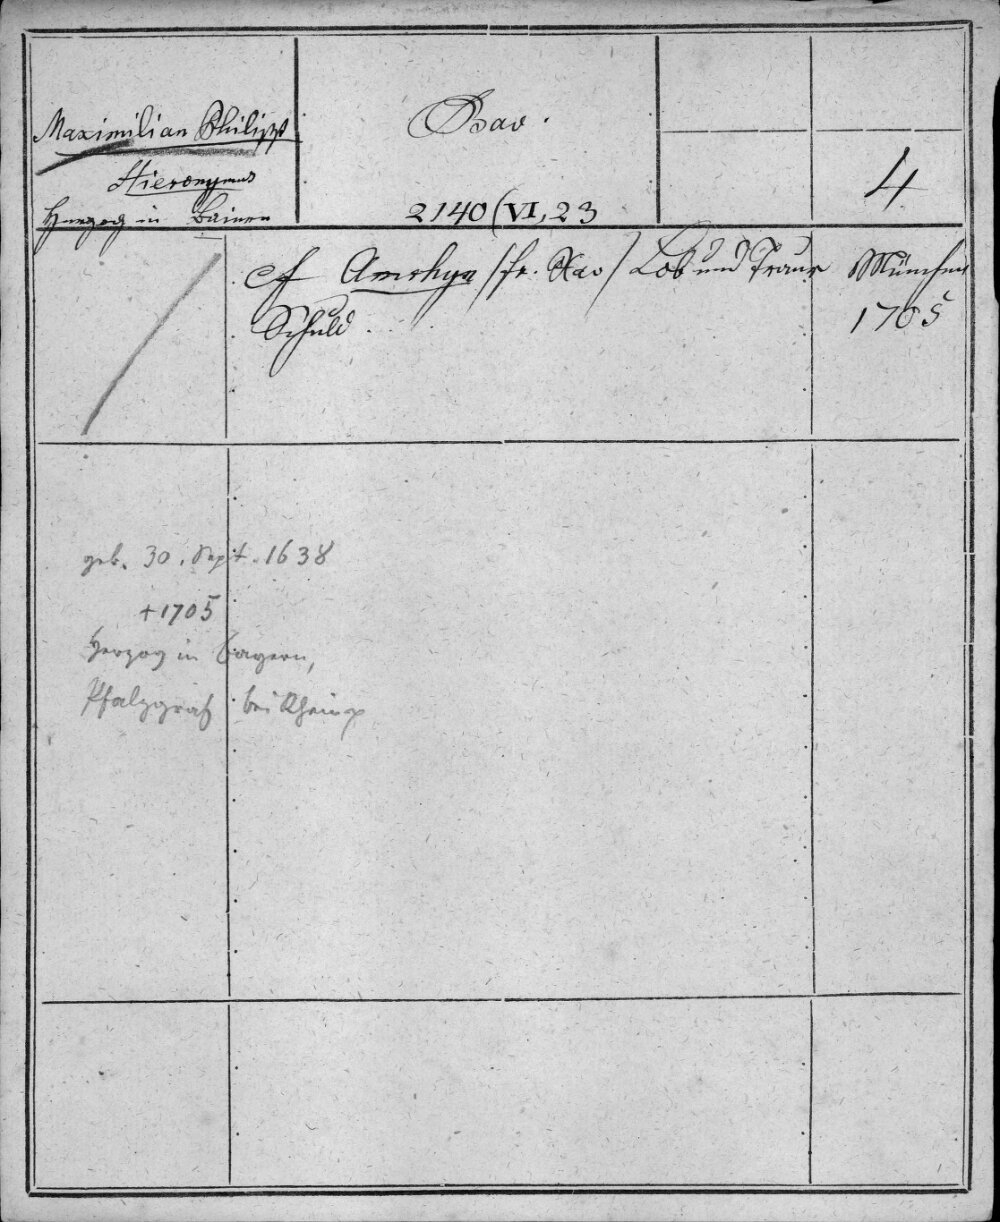 Maximilian Philipp
Hieronymus
Herzog in Baiern
Bav.
2140 (VI, 23
4.
cf Amrhyn (fr. Xav) Lob und Trauer
Schuld
München
1705
geb. 30. Sept. 1638
+ 1705
Herzog in Bayern,
Pfalzgraf bei Rhein